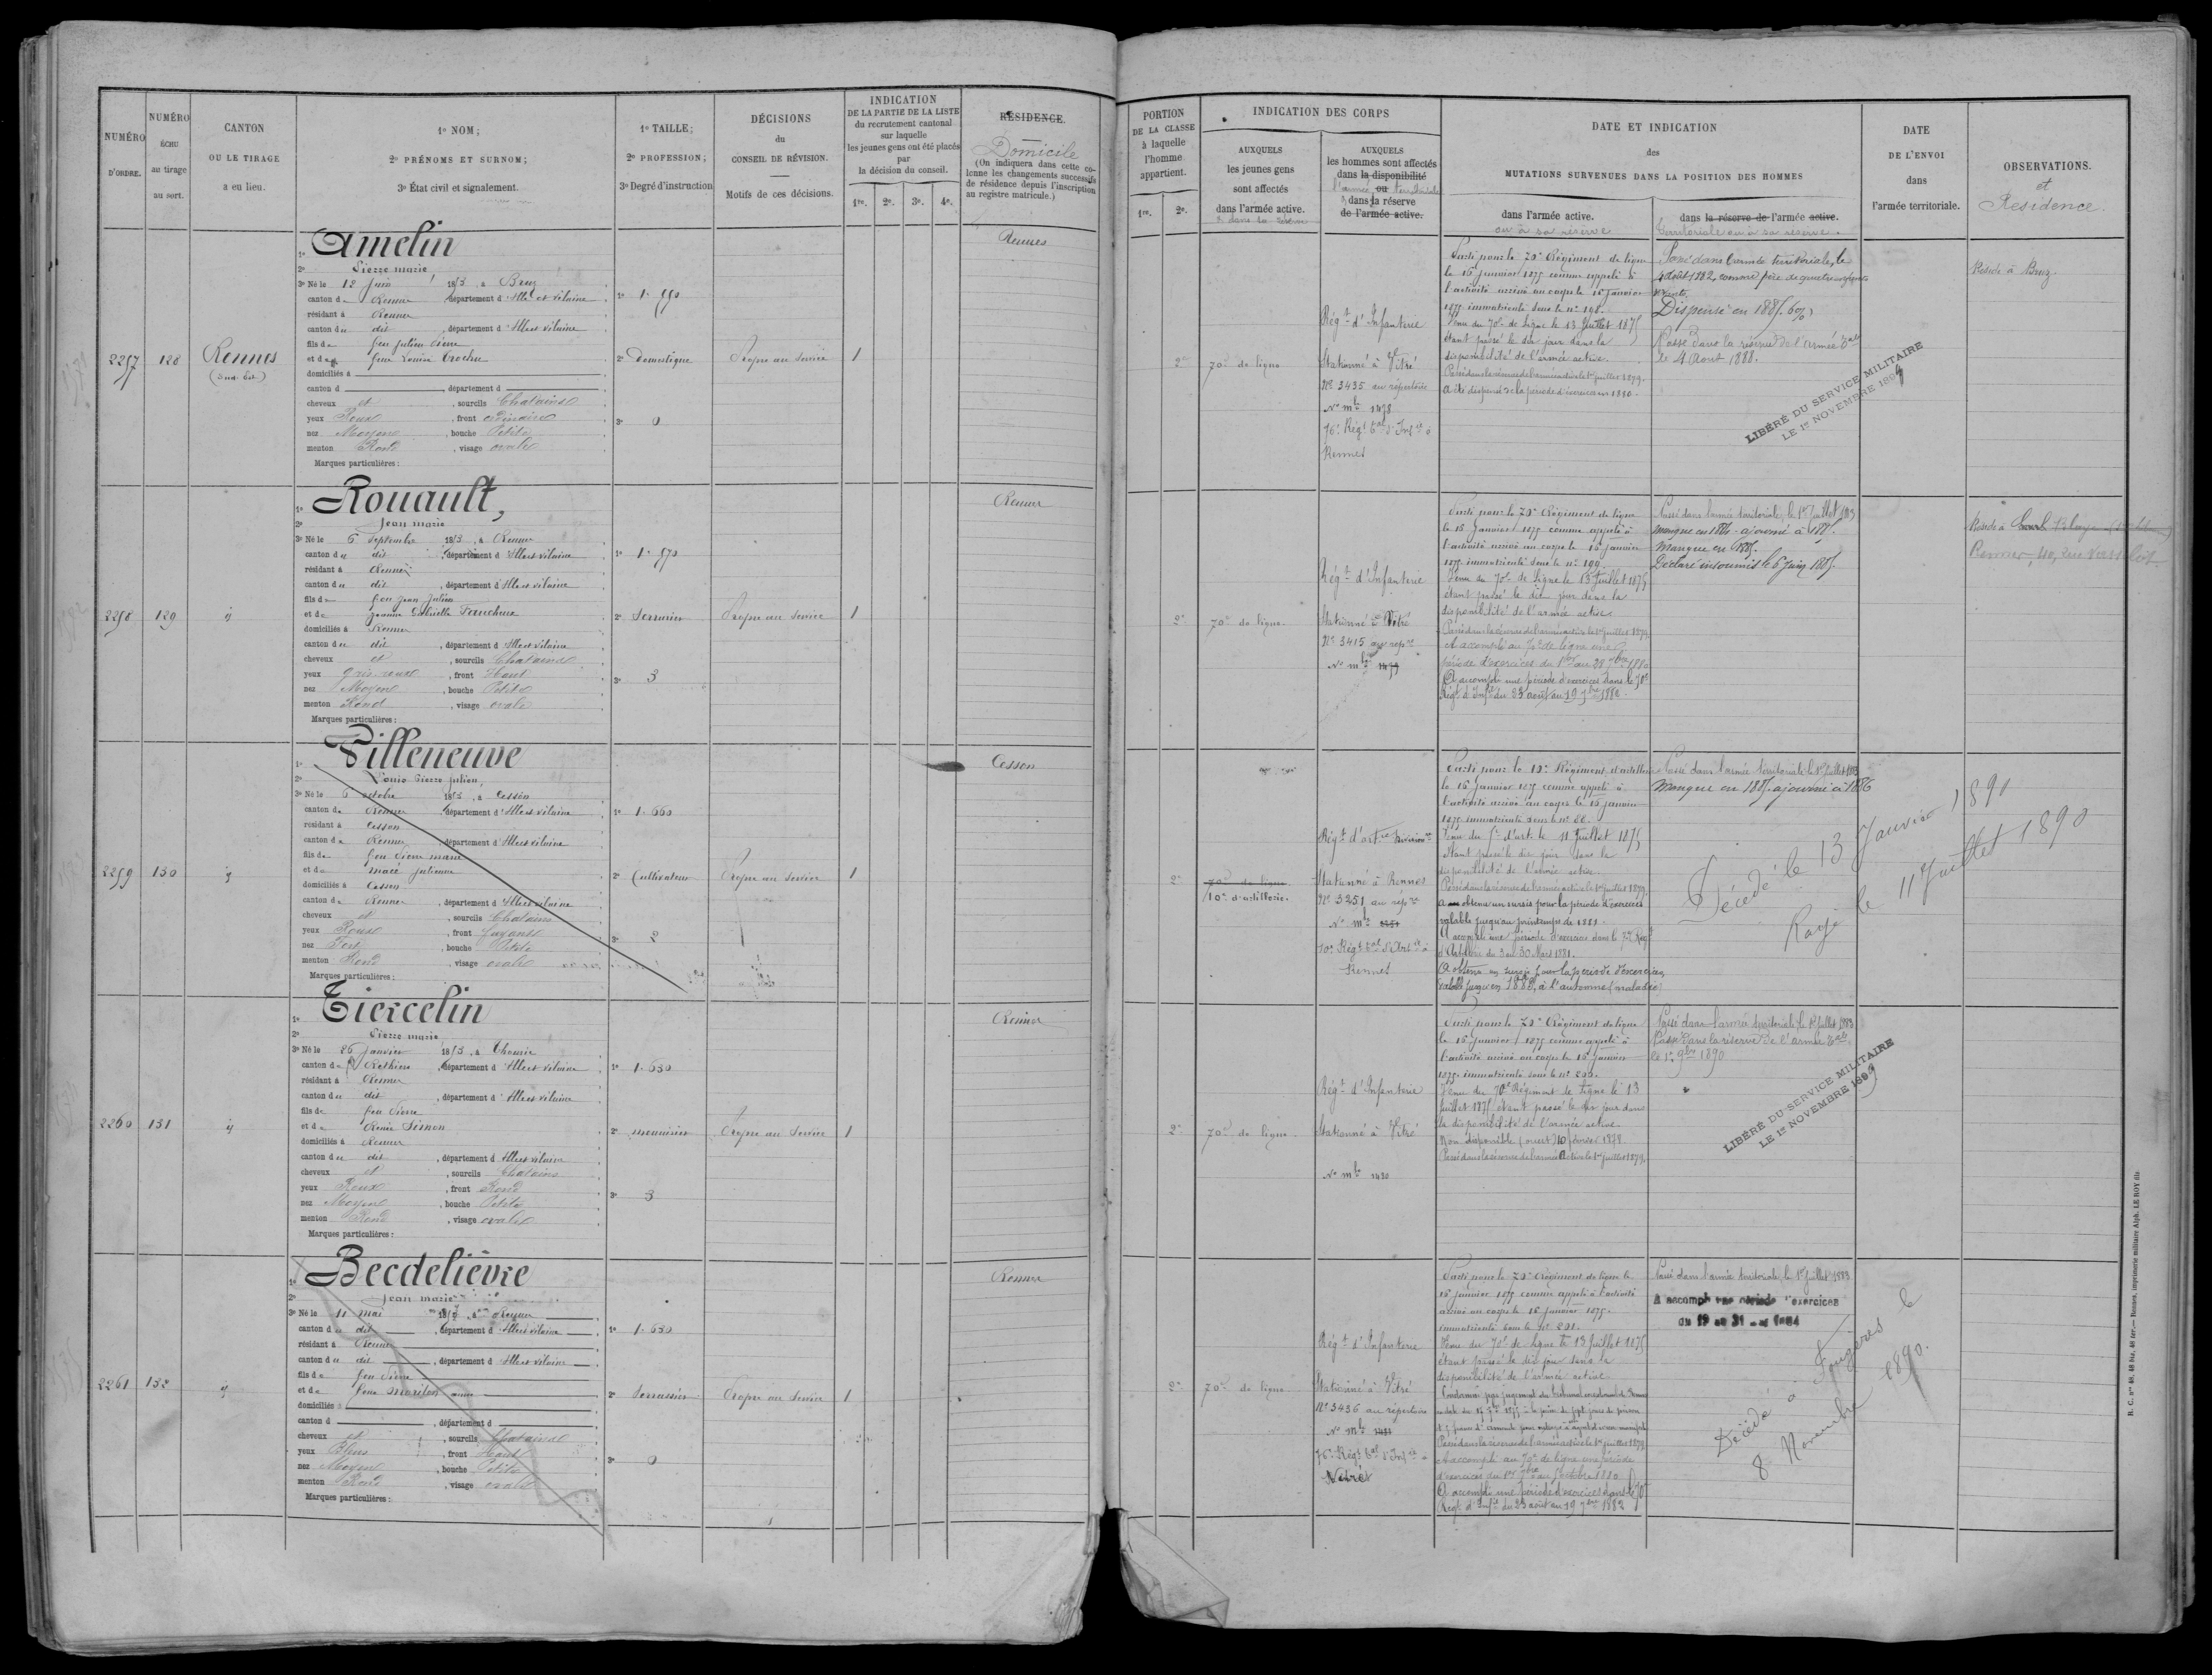 NUMÉRO D'ORDRE.
NUMÉRO ÉCHU au tirage au sort.
CANTON OU LE TIRAGE a eu lieu.
1º NOM;
2º PRÉNOMS ET SURNOM;
3º État civil et signalement.
1º TAILLE;
2º PROFESSION;
3º Degré d'instruction
DÉCISIONS
du
CONSEIL DE RÉVISION.
Motifs de ces décisions.
INDICATION
DE LA PARTIE DE LA LISTE
du recrutement cantonal
sur laquelle
les jeunes gens ont été placés
par
la décision du conseil.
1re. 2e. 3e. 4e.
RÉSIDENCE.
Domicile
(On indiquera dans cette co-
lonne les changements successifs
de résidence depuis l'inscription
au registre matricule.)
PORTION
DE LA CLASSE
à laquelle
l'homme
appartient.
1re. 2e.
INDICATION DES CORPS
AUXQUELS
les jeunes gens
sont affectés
dans l'armée active.
& dans la réserve
AUXQUELS
les hommes sont affectés
dans la disponibilité
l'armée ou territoriale
& dans la réserve
de l'armée active.
DATE ET INDICATION
des
MUTATIONS SURVENUES DANS LA POSITION DES HOMMES
dans l'armée active.
ou à sa réserve
dans la réserve de l'armée active.
territoriale ou à sa réserve.
DATE
DE L'ENVOI
dans
l'armée territoriale.
OBSERVATIONS.
et
Résidence.
2257
128
Rennes
(Sud-Est)
1º Amelin
2º Pierre marie
3º Né le 12 juin 1853, à Bruz
canton de Rennes département d'Ille et vilaine
résidant à Rennes
canton du dit, département d'Ille et vilaine
fils de feu julien Pierre
et de feue Louise
domiciliés à
canton d , département d
cheveux et, sourcils Chatains
yeux Roux, front ordinaire
nez Moyen, bouche Petite
menton Rond, visage ovale
Marques particulières:
1º 1.590
2º Domestique
3º 0
Propre au service
1
Rennes
2e
70e de ligne
Régt d'Infanterie
Stationné à Vitré
Nº 3435 au répertoire
Nº mle 1478
76e Régt tal d'Infie à
Rennes
Parti pour le 70e Régiment de ligne
le 16 janvier 1875 comme appelé à
l'activité arrivé au corps le 16 janvier
1875 immatriculé sous le nº 198.
Venu du 70e de Ligne le 13 Juillet 1875
étant passé le dit jour dans la
disponibilité de l'armée active.
Passé dans la réserve de l'armée active le 1er juillet 1879.
A été dispensé de la période d'exercices en 1880.
Passé dans l'armée territoriale, le
4 août 1882, comme père de quatre enfants
vivants.
Dispensé en 1885. 6%
Passé dans la réserve de l'armée tale
le 4 Août 1888.
LIBÉRÉ DU SERVICE MILITAIRE
LE 1er NOVEMBRE 1899
Réside à Bruz.
2258
129
id
1º Rouault,
2º Jean marie
3º Né le 6 Septembre 1853, à Rennes
canton du dit, département d'Ille et vilaine
résidant à Rennes
canton du dit, département d'Ille et vilaine
fils de feu jean julien
et de jeanne Gabrielle
domiciliés à Rennes
canton du dit, département d'Ille et vilaine
cheveux et, sourcils Chatains
yeux gris-roux, front Haut
nez Moyen, bouche Petite
menton Rond, visage ovale
Marques particulières:
1º 1.570
2º Serrurier
3º 3
Propre au Service
1
Rennes
2e
70e de ligne.
Régt d'Infanterie
Stationné à Vitré
Nº 3415 au répre
Nº mle 1479
Parti pour le 70e Régiment de ligne
le 16 janvier 1875 comme appelé à
l'activité arrivé au corps le 16 janvier
1875 immatriculé sous le nº 199.
Venu du 70e de Ligne le 13 Juillet 1875
étant passé le dit jour dans la
disponibilité de l'armée active.
Passé dans la réserve de l'armée active le 1er juillet 1879.
A accompli au 70e de ligne une
période d'exercices du 1er au 28 1880
A accompli une période d'exercices dans le 70e
Régt d'Infie du 23 août au 19 7bre 1882.
Passé dans l'armée territoriale, le 1er Juillet 1883
manque en 1884 - ajourné à 1885.
Manque en 1885.
Déclaré insoumis le 6 Juin 1885.
Réside à
Rennes, 40, rue
2259
130
id
1º Villeneuve
2º Louis Pierre julien
3º Né le 6 octobre 1853, à Cesson
canton de Rennes département d'Ille et vilaine
résidant à Cesson
canton de Rennes, département d'Ille et vilaine
fils de feu Pierre marie
et de macé julienne
domiciliés à Cesson
canton de Rennes, département d'Ille et vilaine
cheveux et, sourcils Chatains
yeux Roux, front fuyant
nez Fort, bouche Petite
menton Rond, visage ovale
Marques particulières:
1º 1.660
2º Cultivateur
3º 2
Propre au Service
1
Cesson
2e
70e de ligne
10e d'artillerie.
Régt d'artie
Stationné à Rennes
Nº 3251 au répre
Nº mle
10e Régt tal d'Artie à
Rennes
Parti pour le 10e Régiment d'artillerie
le 16 janvier 1875 comme appelé à
l'activité arrivé au corps le 16 janvier
1875 immatriculé sous le nº 86.
Venu du d'art. le 11 Juillet 1875
étant passé le dit jour dans la
disponibilité de l'armée active.
Passé dans la réserve de l'armée active le 1er juillet 1879.
A obtenu un sursis pour la période d'exercices
valable jusqu'au printemps de 1881.
A accompli une période d'exercices dans le 7e Régt
d'Artillerie du 3 au 30 Mars 1881.
A obtenu un sursis pour la période d'exercices
valable jusqu'en 1883, à l'automne (maladie)
Passé dans l'armée territoriale le 1er Juillet 1883
Manque en 1885. ajourné à 1886
Décédé le 13 Janvier 1890
Rayé le 11 Juillet 1890
2260
131
id
1º Tiercelin
2º Pierre marie
3º Né le 26 janvier 1853, à Thourie
canton de Rethiers département d'Ille et vilaine
résidant à Rennes
canton du dit, département d'Ille et vilaine
fils de feu Pierre
et de Renée Simon
domiciliés à Rennes
canton du dit, département d'Ille et vilaine
cheveux et, sourcils Chatains
yeux Roux, front Rond
nez Moyen, bouche Petite
menton Rond, visage ovale
Marques particulières:
1º 1.630
2º menuisier
3º 3
Propre au Service
1
Rennes
2e
70e de ligne.
Régt d'Infanterie
Stationné à Vitré
Nº mle 1480
Parti pour le 70e Régiment de ligne
le 16 janvier 1875 comme appelé à
l'activité arrivé au corps le 16 janvier
1875 immatriculé sous le nº 200.
Venu du 70e Régiment de Ligne le 13
Juillet 1875 étant passé le dit jour dans
la disponibilité de l'armée active.
Non disponible (ouest) 10 février 1878.
Passé dans la réserve de l'armée active le 1er juillet 1879.
Passé dans l'armée territoriale, le 1er Juillet 1883
Passé dans la réserve de l'armée tale
le 1er 9bre 1890
LIBÉRÉ DU SERVICE MILITAIRE
LE 1er NOVEMBRE 1899
2261
132
id
1º Becdelièvre
2º Jean marie
3º Né le 11 mai 1853, à Rennes
canton du dit, département d'Ille et vilaine
résidant à Rennes
canton du dit, département d'Ille et vilaine
fils de feu Pierre
et de feue anne
domiciliés à
canton d , département d
cheveux et, sourcils Chatains
yeux Bleus, front Haut
nez Moyen, bouche Petite
menton Rond, visage ovale
Marques particulières:
1º 1.630
2º Terrassier
3º 0
Propre au Service
1
Rennes
2e
70e de ligne.
Régt d'Infanterie
Stationné à Vitré
Nº 3436 au répertoire
Nº mle 1481
76e Régt tal d'Infie à
Vitré
Parti pour le 70e Régiment de ligne le
16 janvier 1875 comme appelé à l'activité
arrivé au corps le 16 janvier 1875.
immatriculé sous le nº 201.
Venu du 70e de Ligne le 13 Juillet 1875
étant passé le dit jour dans la
disponibilité de l'armée active.
Condamné par jugement du tribunal correctionnel de Rennes
Passé dans la réserve de l'armée active le 1er juillet 1879
A accompli au 70e de ligne une période
d'exercices du 1er octobre 1880
A accompli une période d'exercices dans le 70e
Régt d'Infie du 23 août au 19 7bre 1882
Passé dans l'armée territoriale, le 1er Juillet 1883
A accompli une période d'exercices
du 19 au 31 mai 1884
Décédé à Fougères le
8 Novembre 1890.
H. C. nos 48, 48 bis, 48 ter. — Rennes, imprimerie militaire Alph. LE ROY fils